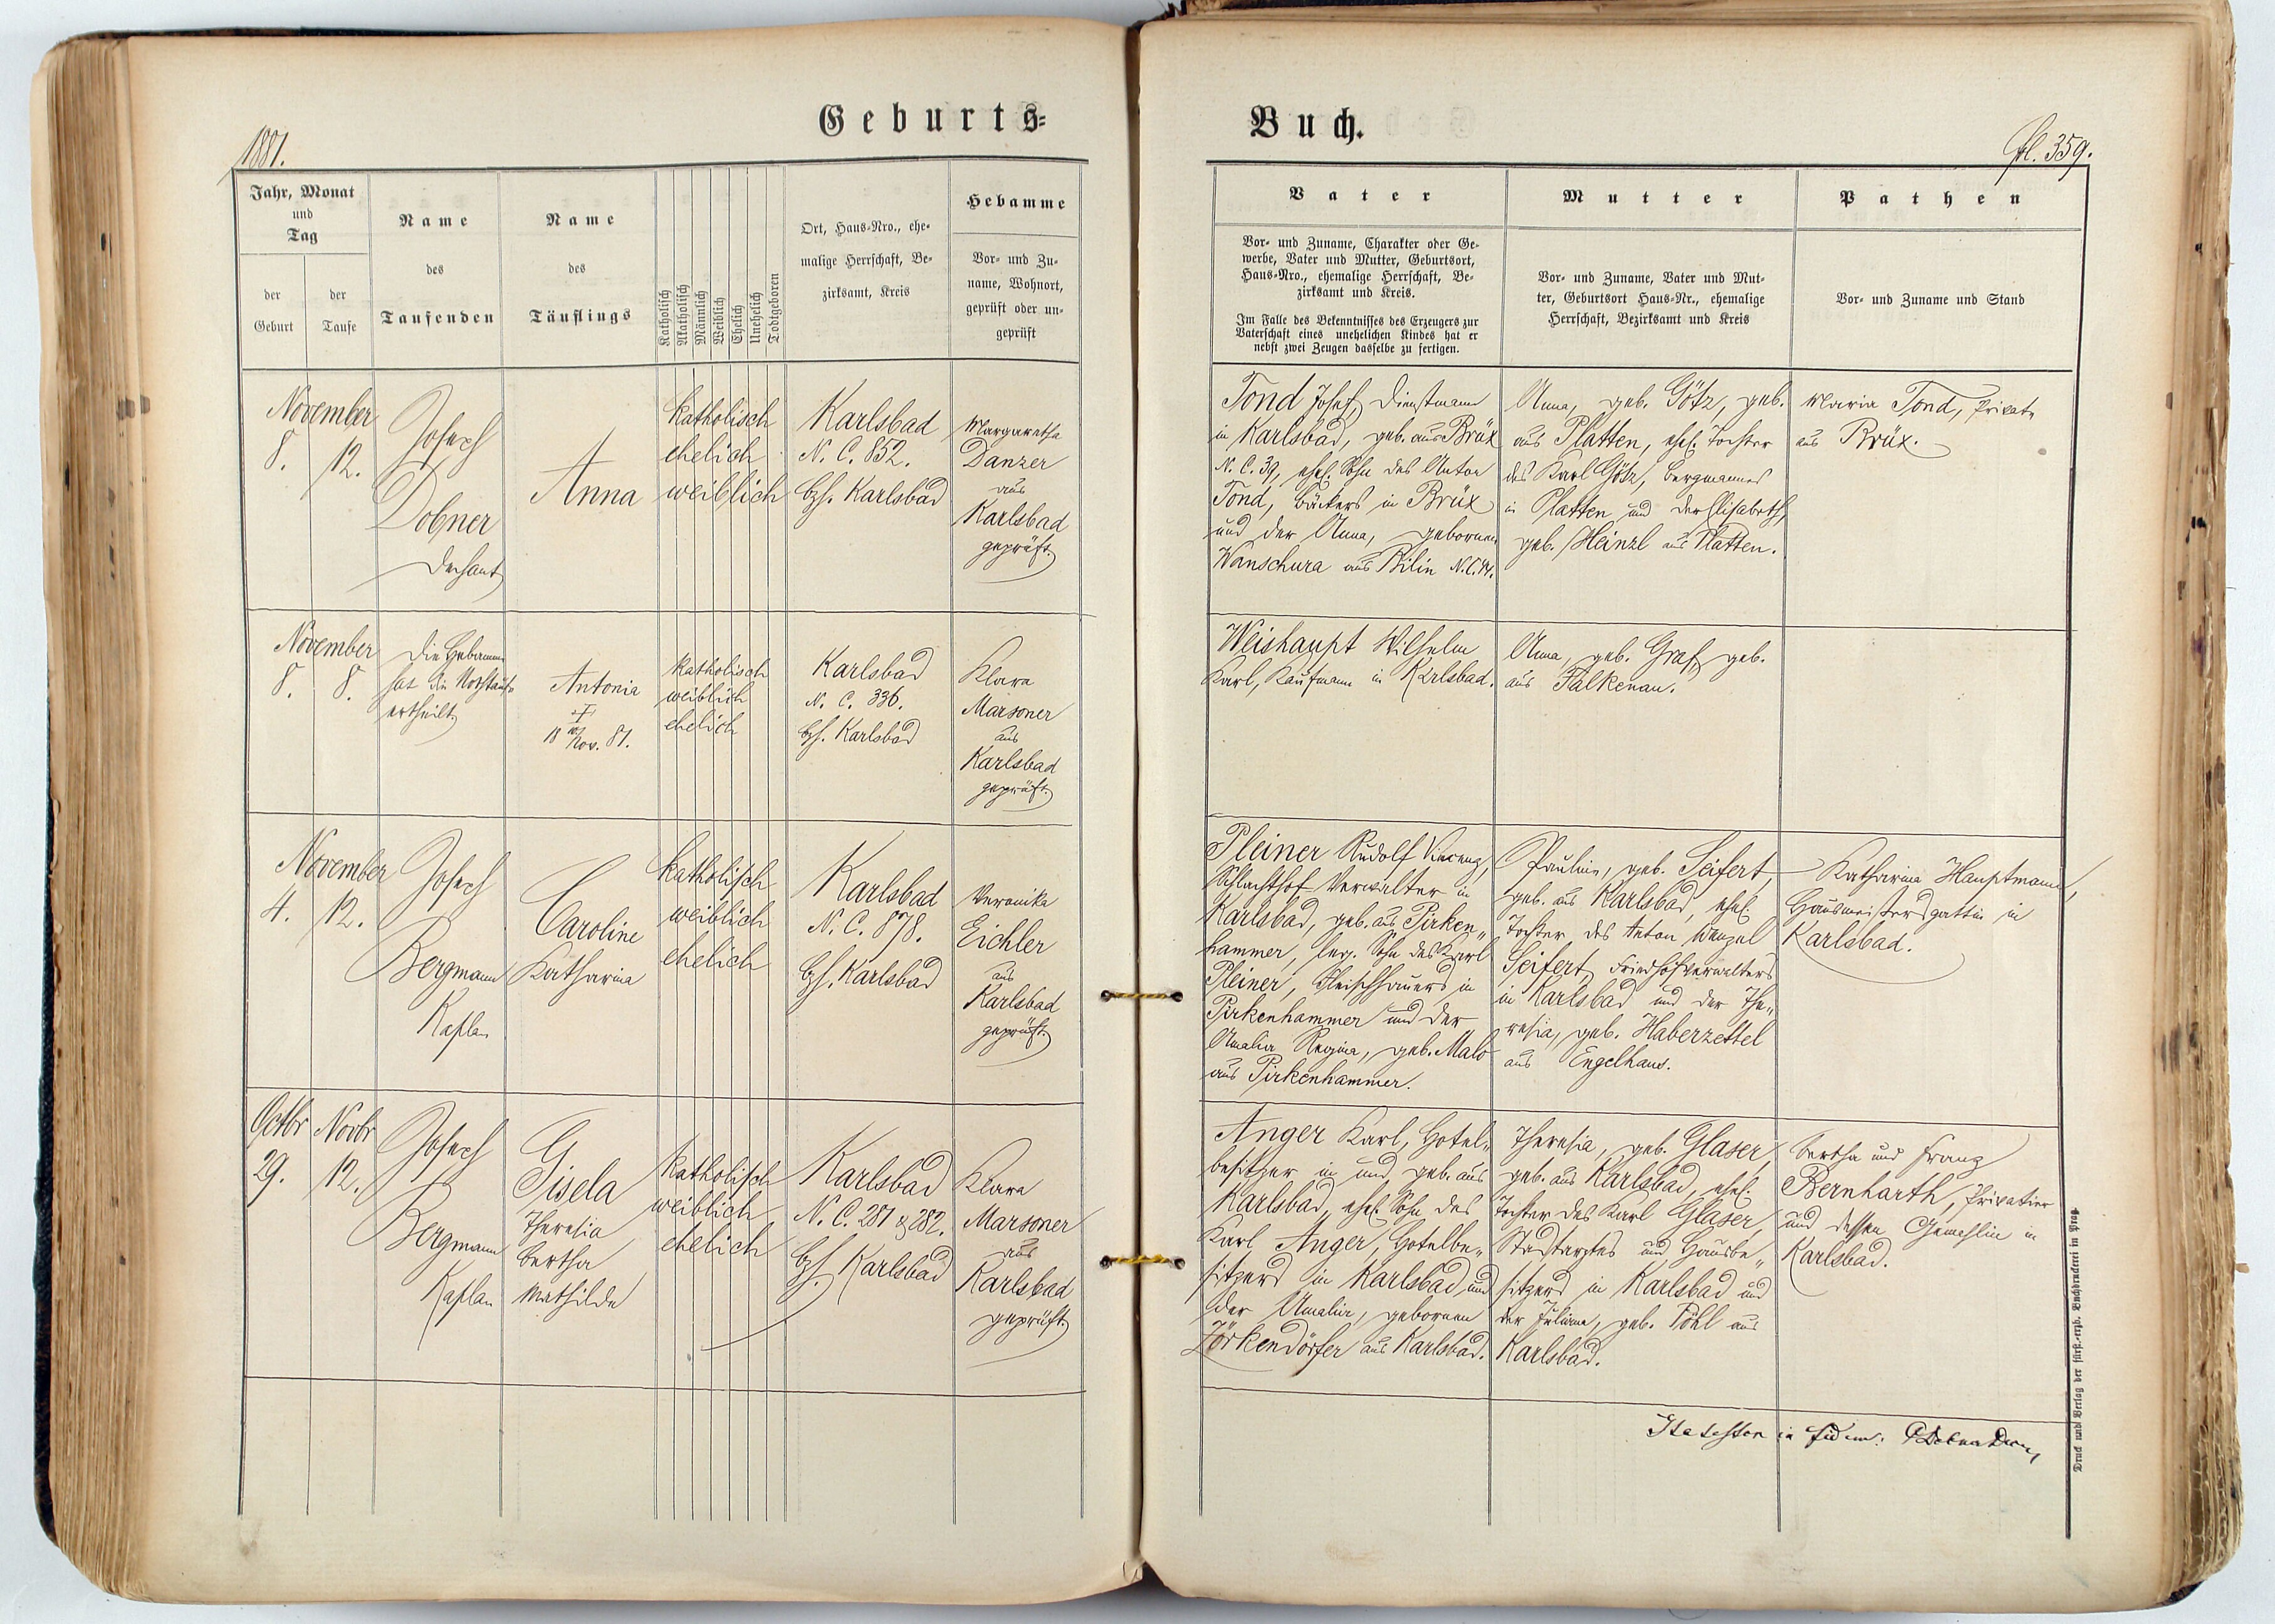 Geburts-
Buch.
1881.
fol. 359.
Jahr, Monat
und
Tag
der
Geburt
der
Taufe
Name
des
Taufenden
Name
des
Täuflings
Katholisch
Akatholisch
Männlich
Weiblich
Ehelich
Unehelich
Todtgeboren
Ort, Haus-Nro., ehe-
malige Herrschaft, Be-
zirksamt, Kreis
Hebamme
Vor- und Zu-
name, Wohnort,
geprüft oder un-
geprüft
Vater
Vor- und Zuname, Charakter oder Ge-
werbe, Vater und Mutter, Geburtsort,
Haus-Nro., ehemalige Herrschaft, Be-
zirksamt und Kreis.
Im Falle des Bekenntnisses des Erzeugers zur
Vaterschaft eines unehelichen Kindes hat er
nebst zwei Zeugen dasselbe zu fertigen.
Mutter
Vor- und Zuname, Vater und Mut-
ter, Geburtsort Haus-Nr., ehemalige
Herrschaft, Bezirksamt und Kreis
Pathen
Vor- und Zuname und Stand
November
8. 12.
Josef
Dobner
Dechant
Anna
katholisch
ehelich
weiblich
Karlsbad
N. C. 852.
bzh. Karlsbad
Margaretha
Danzer
aus
Karlsbad
geprüft.
Tond Josef, Dienstmann
in Karlsbad, geb. aus Brüx
N. C. 39, ehel. Sohn des Anton
Tond, Bäckers in Brüx
und der Anna, gebornen
Wanschura aus Bilin N. C. 14.
Anna, geb. Götz, geb.
aus Platten, ehel. Tochter
des Karl Götz, Bergmannes
in Platten und der Elisabeth,
geb. Heinzl aus Platten.
Maria Tond, Private
aus Brüx.
November
8. 8.
Die Hebamme
hat die Nothtaufe
ertheilt
Antonia
†
18 Nov. 81.
katholisch
weiblich
ehelich
Karlsbad
N. C. 336.
bzh. Karlsbad
Klara
Marsoner
aus
Karlsbad
geprüft.
Weishaupt Wilhelm
Karl, Kaufmann in Karlsbad.
Anna, geb. Graf, geb.
aus Falkenau.
November
4. 12.
Josef
Bergmann
Kaplan
Caroline
Katharina
katholisch
weiblich
ehelich
Karlsbad
N. C. 878.
bzh. Karlsbad
Veronika
Eichler
aus
Karlsbad
geprüft.
Pleiner Rudolf Vincenz,
Schlachthof Verwalter in
Karlsbad, geb. aus Pirken„
hammer, leg. Sohn des Karl
Pleiner, Fleischhauers in
Pirkenhammer und der
Amalia Regina, geb. Malo
aus Pirkenhammer.
Paulin, geb. Seifert,
geb. aus Karlsbad, ehel.
Tochter des Anton Wenzel
Seifert, Friedhofverwalters
in Karlsbad und der The„
resia, geb. Haberzettel
aus Engelhaus.
Katharina Hauptmann,
Hausmeistersgattin in
Karlsbad.
Octbr Novbr
29. 12.
Josef
Bergmann
Kaplan
Gisela
Theresia
Bertha
Mathilde
katholisch
weiblich
ehelich
Karlsbad
N. C. 281 & 282.
bzh. Karlsbad
Klara
Marsoner
aus
Karlsbad
geprüft
Anger Karl, Hotel„
besitzer in und geb. aus
Karlsbad, ehel. Sohn des
Karl Anger, Hotelbe„
sitzers in Karlsbad und
der Amalia, gebornen
Zörkendörfer aus Karlsbad.
Theresia, geb. Glaser,
geb. aus Karlsbad, ehel.
Tochter des Karl Glaser,
Stadtarztes und Hausbe„
sitzers in Karlsbad und
der Juliana, geb. Pöhl aus
Karlsbad.
Bertha und Franz
Bernharth, Privatier
und dessen Gemahlin in
Karlsbad.
in fidem:
Druck und Verlag der fürst.-erzb. Buchdruckerei in Prag.